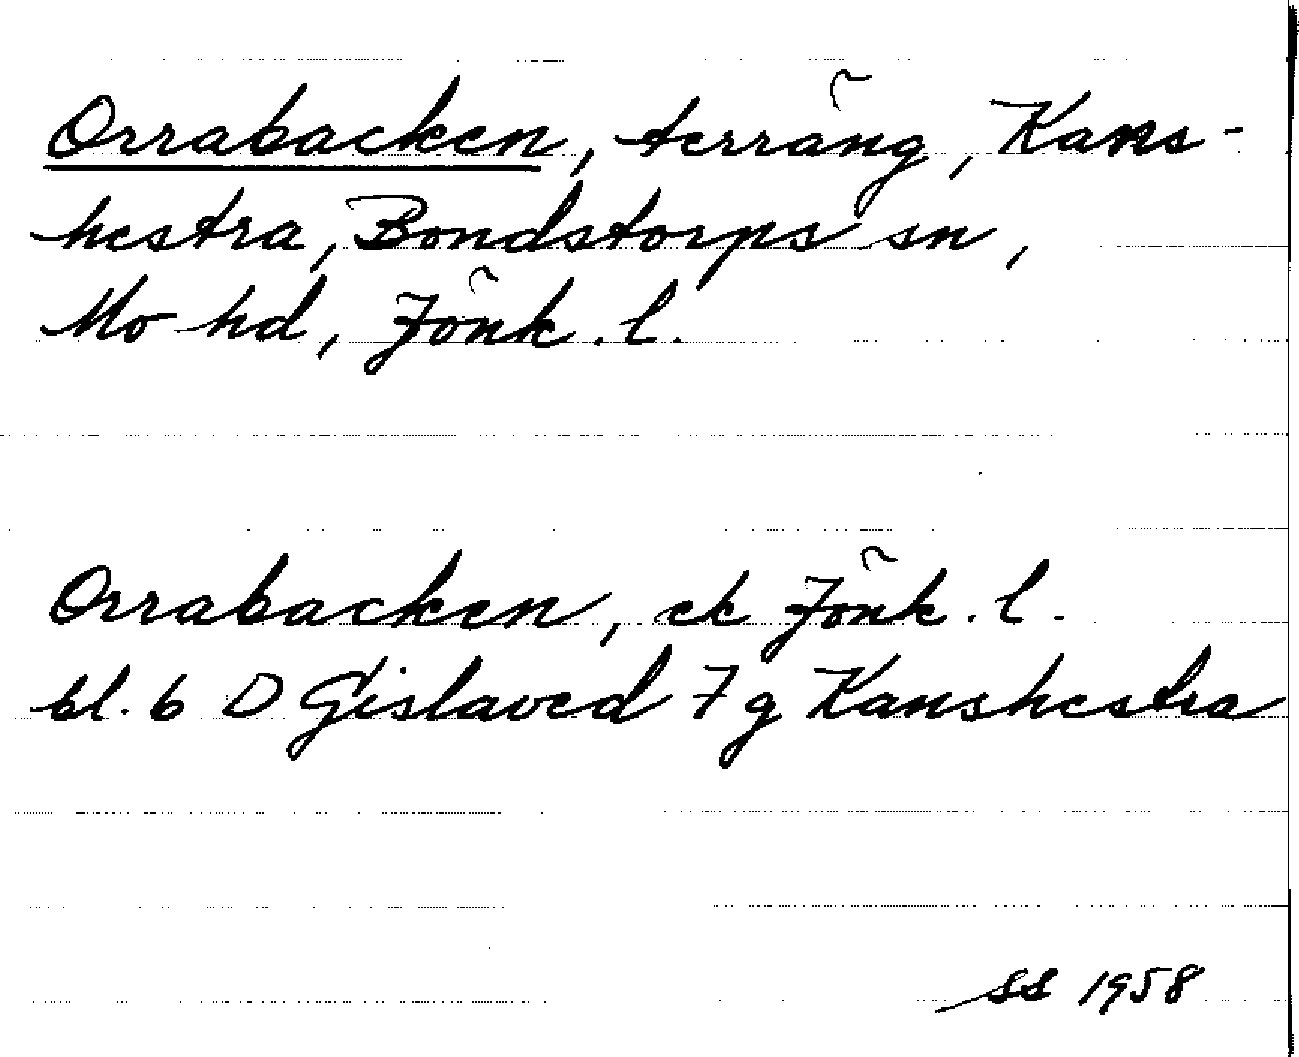 Orrabacken, terräng, Kans-
hestra, Bondstorps sn,
Mo hd, Jönk. l.
Orrabacken, ek Jönk. l.
bl. 6 D Gislaved 7 g Kanshestra
SS 1958